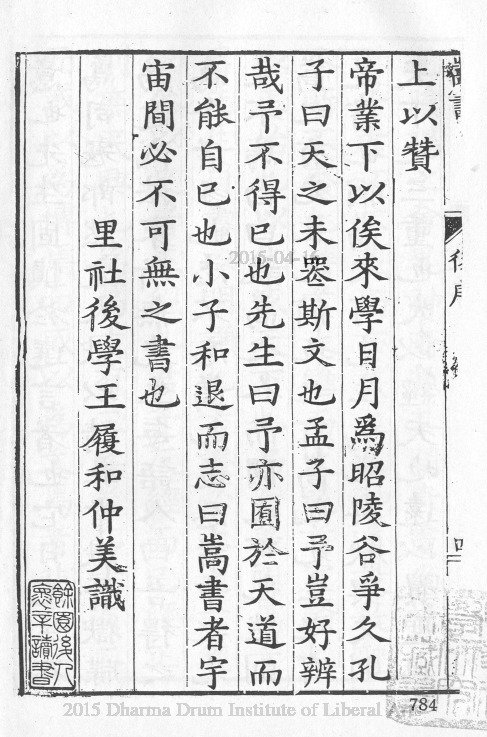 上以贊
帝業下以俟來學日月爲昭陵谷爭久孔
子曰天之未喪斯文也孟子曰予豈好辨
哉予不得已也先生曰予亦囿於天道而
不能自已也小子和退而志曰嵩書者宇
宙間必不可無之書也
里社後學王履和仲美識
784
2015 Dharma Drum Institute of Liberal